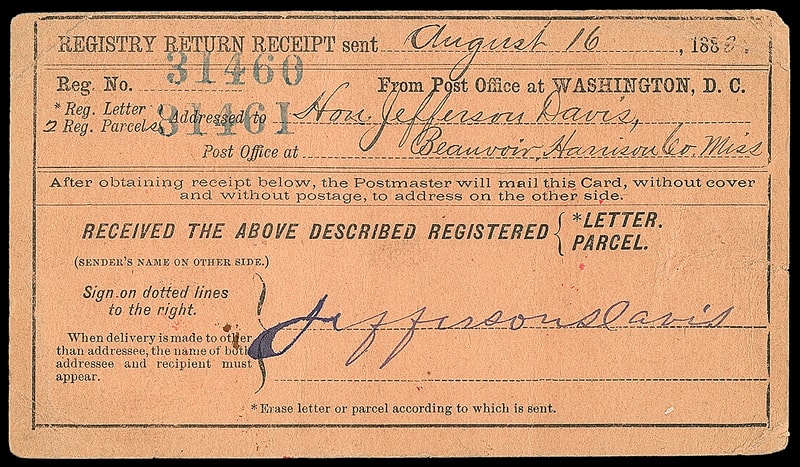 REGISTRY RETURN RECEIPT sent August 16, 188
Reg. No. 31460 From Post Office at WASHINGTON, D. C.
* Reg. Letter 31461 Addressed to Hon. Jefferson Davis,
2 Reg. Parcels
Post Office at Beauvoir, Harrison Co. Miss
After obtaining receipt below, the Postmaster will mail this Card, without cover
and without postage, to address on the other side.
RECEIVED THE ABOVE DESCRIBED REGISTERED { *LETTER.
PARCEL.
(SENDER'S NAME ON OTHER SIDE.)
Sign on dotted lines
to the right.
Jefferson Davis
When delivery is made to other
than addressee, the name of both
addressee and recipient must
appear.
*Erase letter or parcel according to which is sent.